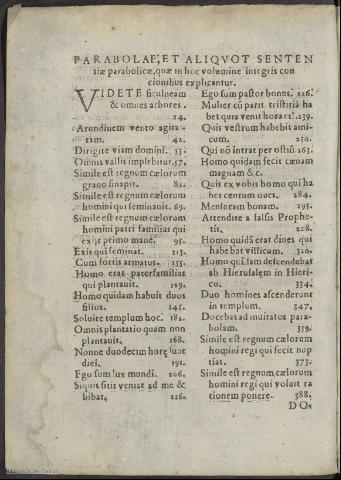 PARABOLAE, ET ALIQVOT SENTEN
tiæ parabolicæ, quæ in hoc volumine integris con
cionibus explicantur.
VIDETE ficulneam
& omnes arbores.
24.
Arundinem vento agita-
tam. 42.
Dirigite viam domini. 53.
Omnis vallis implebitur. 57.
Simile est regnum cælorum
grano sinapis. 82.
Simile est regnum cælorum
homini qui seminauit. 69.
Simile est regnum cælorum
homini patri familias qui
exijt primo mane. 95.
Exit qui seminat. 113.
Cum fortis armatus. 155.
Homo erat paterfamilias
qui plantauit. 129.
Homo quidam habuit duos
filios. 145.
Soluite templum hoc. 182.
Omnis plantatio quam non
plantauit. 168.
Nonne duodecim horę sunt
diei. 191.
Ego sum lux mundi. 206.
Siquis sitit veniat ad me &
bibat. 216.
Ego sum pastor bonus. 226.
Mulier cū parit tristitiā ha
bet quia venit hora eiꝰ. 239.
Quis vestrum habebit ami-
cum. 250.
Qui nō intrat per ostiū. 263.
Homo quidam fecit cœnam
magnam &c.
Quis ex vobis homo qui ha
bet centum oues. 284.
Mensuram bonam. 295.
Attendite a falsis Prophe-
tis, 208.
Homo quidā erat diues qui
habebat villicum. 320.
Homo quidam descendebat
ab Hierusalem in Hieri-
co. 334.
Duo homines ascenderunt
in templum. 347.
Docebat ad inuitatos para-
bolam. 359.
Simile est regnum cælorum
homini regi qui fecit nup
tias. 373.
Simile est regnum cælorum
homini regi qui voluit ra
tionem ponere. 388.
DO-